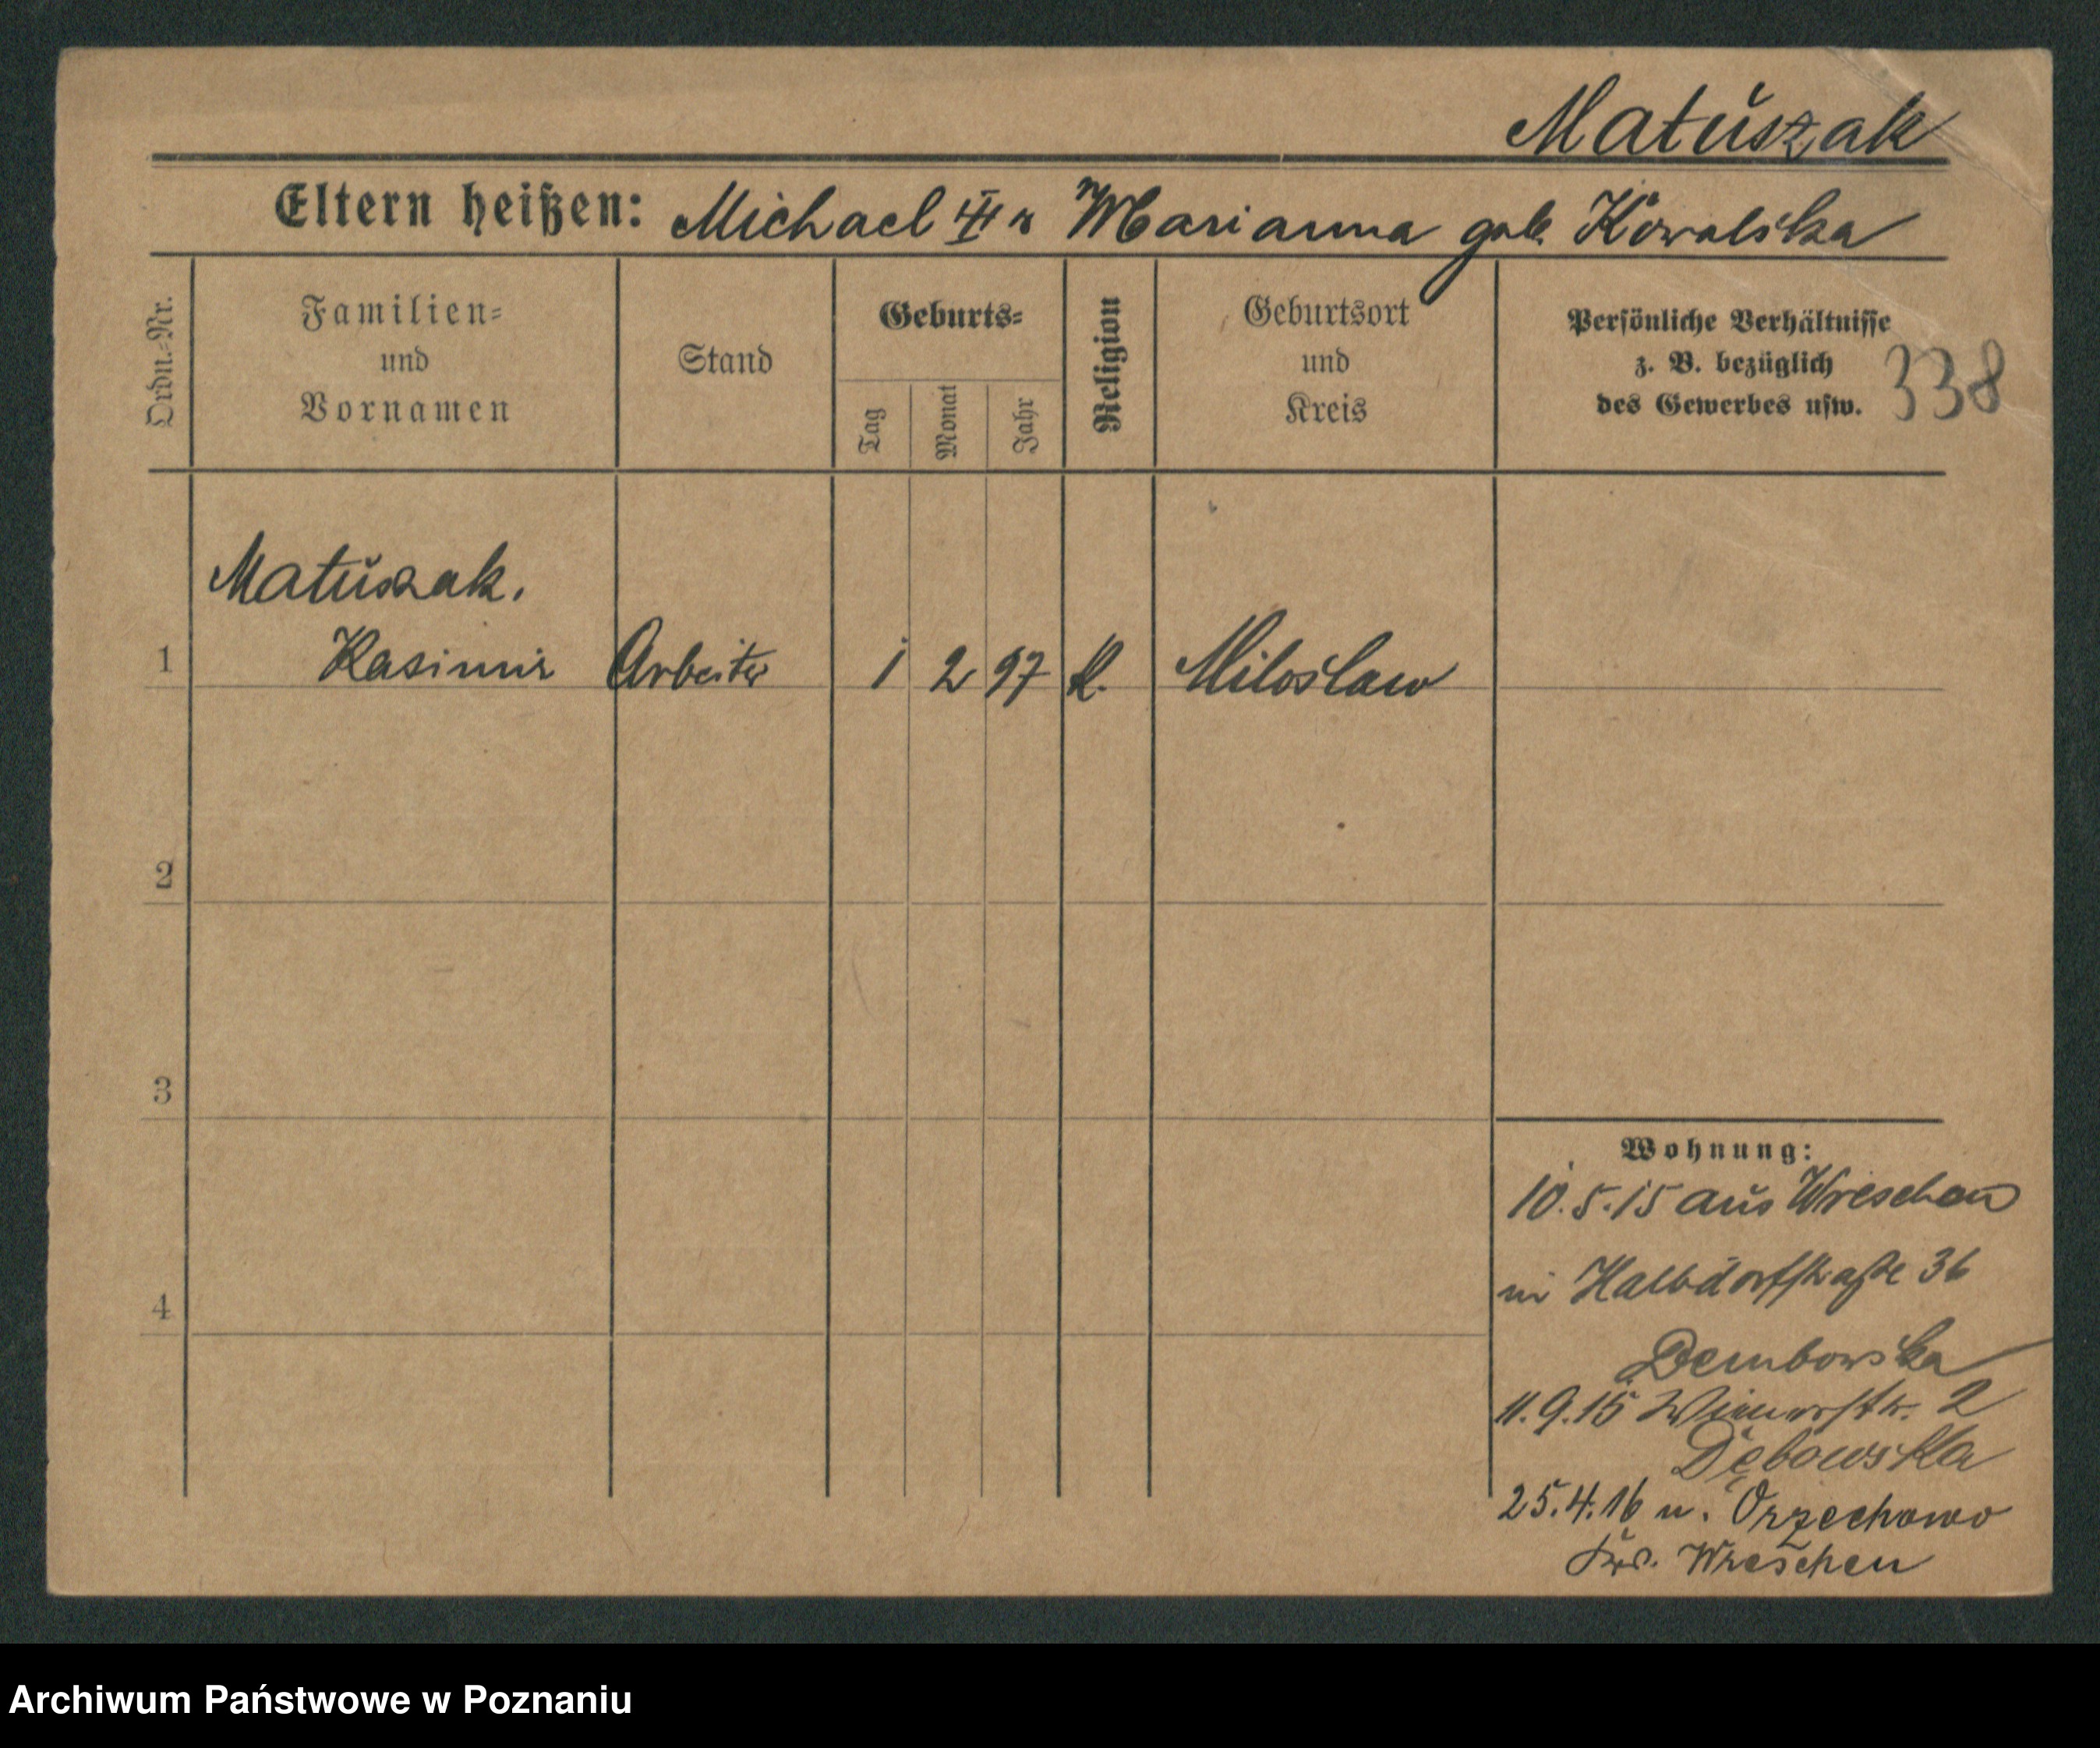 Matuszak
Eltern heißen: Michael u Marianna geb. Kowalska
Ordn.-Nr.
Familien-
und
Vornamen
Stand
Geburts-
Tag
Monat
Jahr
Religion
Geburtsort
und
Kreis
Persönliche Verhältnisse
z. B. bezüglich
des Gewerbes usw.
338
Matuszak.
1 Kasimir Arbeiter 1 2 97 k. Miloslaw
2
3
4
Wohnung:
10.5.15 aus Wreschen
in Halbdorfstraße 36
Dembowska
11.9.15 2
Dębowska
25.4.16 n. Orzechowo
Wreschen
Archiwum Państwowe w Poznaniu